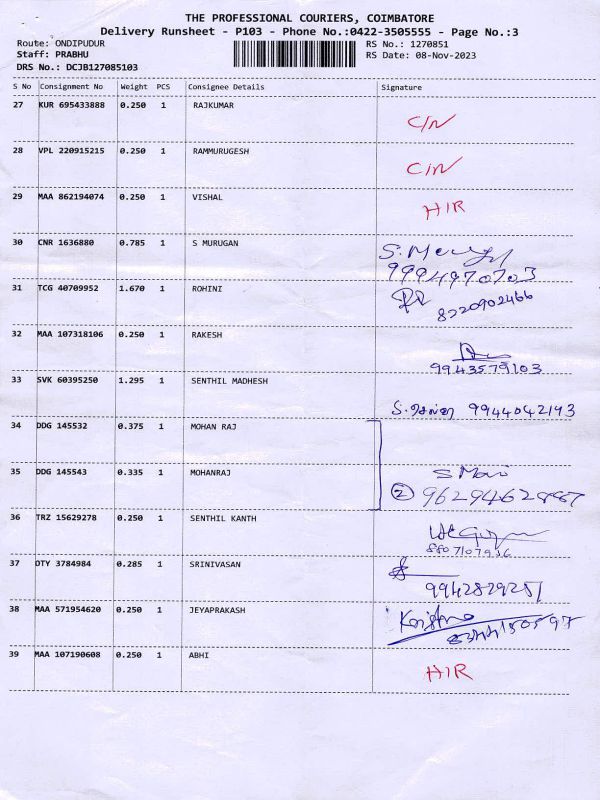 THE PROFESSIONAL COURIERS, COIMBATORE
Delivery Runsheet - P103 - Phone No.:0422-3505555 - Page No.:3
Route: ONDIPUDUR RS No.: 1270851
Staff: PRABHU RS Date: 08-Nov-2023
DRS No.: DCJB127085103
S No Consignment No Weight PCS Consignee Details Signature
27 KUR 695433888 0.250 1 RAJKUMAR
C/N
28 VPL 220915215 0.250 1 RAMMURUGESH
C/N
29 MAA 862194074 0.250 1 VISHAL
HIR
30 CNR 1636880 0.785 1 S MURUGAN
9994970703
31 TCG 40709952 1.670 1 ROHINI
8220902466
32 MAA 107318106 0.250 1 RAKESH
9943579103
33 SVK 60395250 1.295 1 SENTHIL MADHESH
9944042193
34 DDG 145532 0.375 1 MOHAN RAJ
35 DDG 145543 0.335 1 MOHANRAJ
2
36 TRZ 15629278 0.250 1 SENTHIL KANTH
37 OTY 3784984 0.285 1 SRINIVASAN
9942829251
38 MAA 571954620 0.250 1 JEYAPRAKASH
39 MAA 107190608 0.250 1 ABHI
HIR